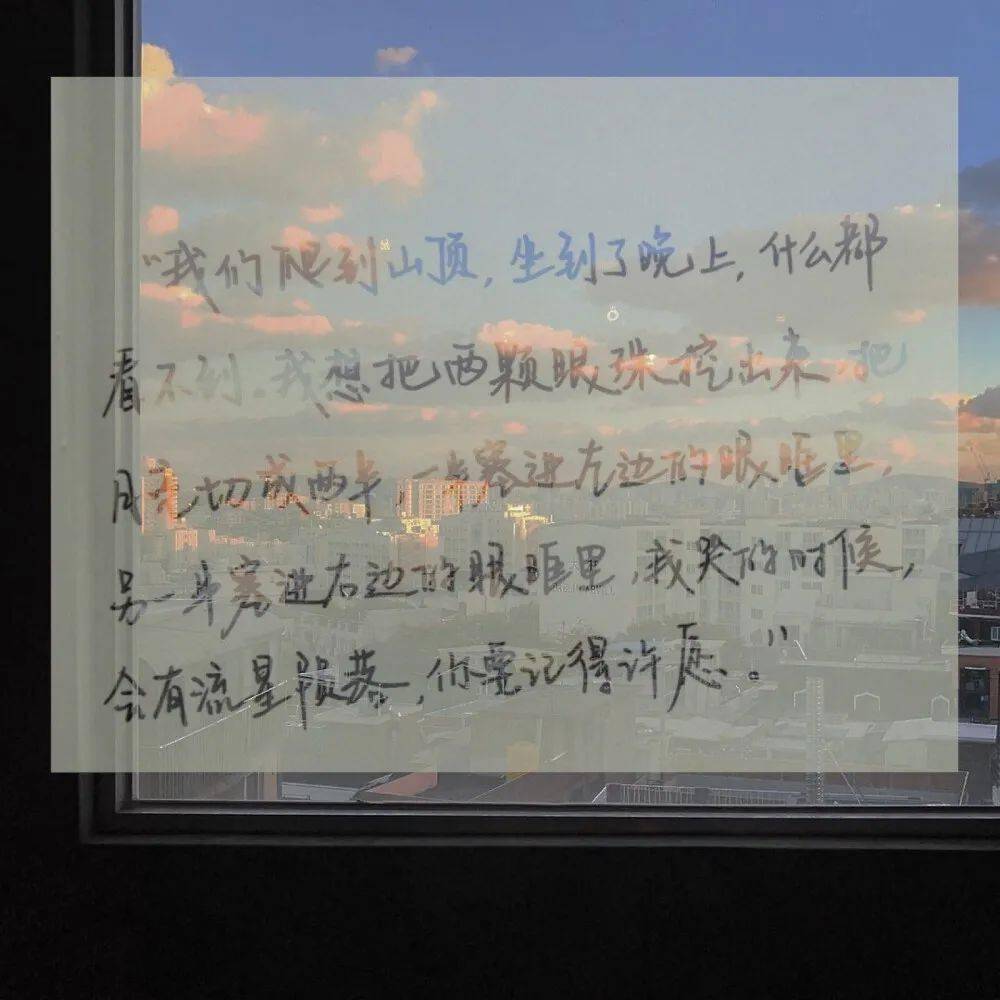 “我们爬到山顶,坐到了晚上,什么都
看不到.我想把两颗眼珠挖出来,把
月亮切成两半,一半塞进左边的眼眶里,
另一半塞进右边的眼眶里,我哭的时候,
会有流星陨落,你要记得许愿。”